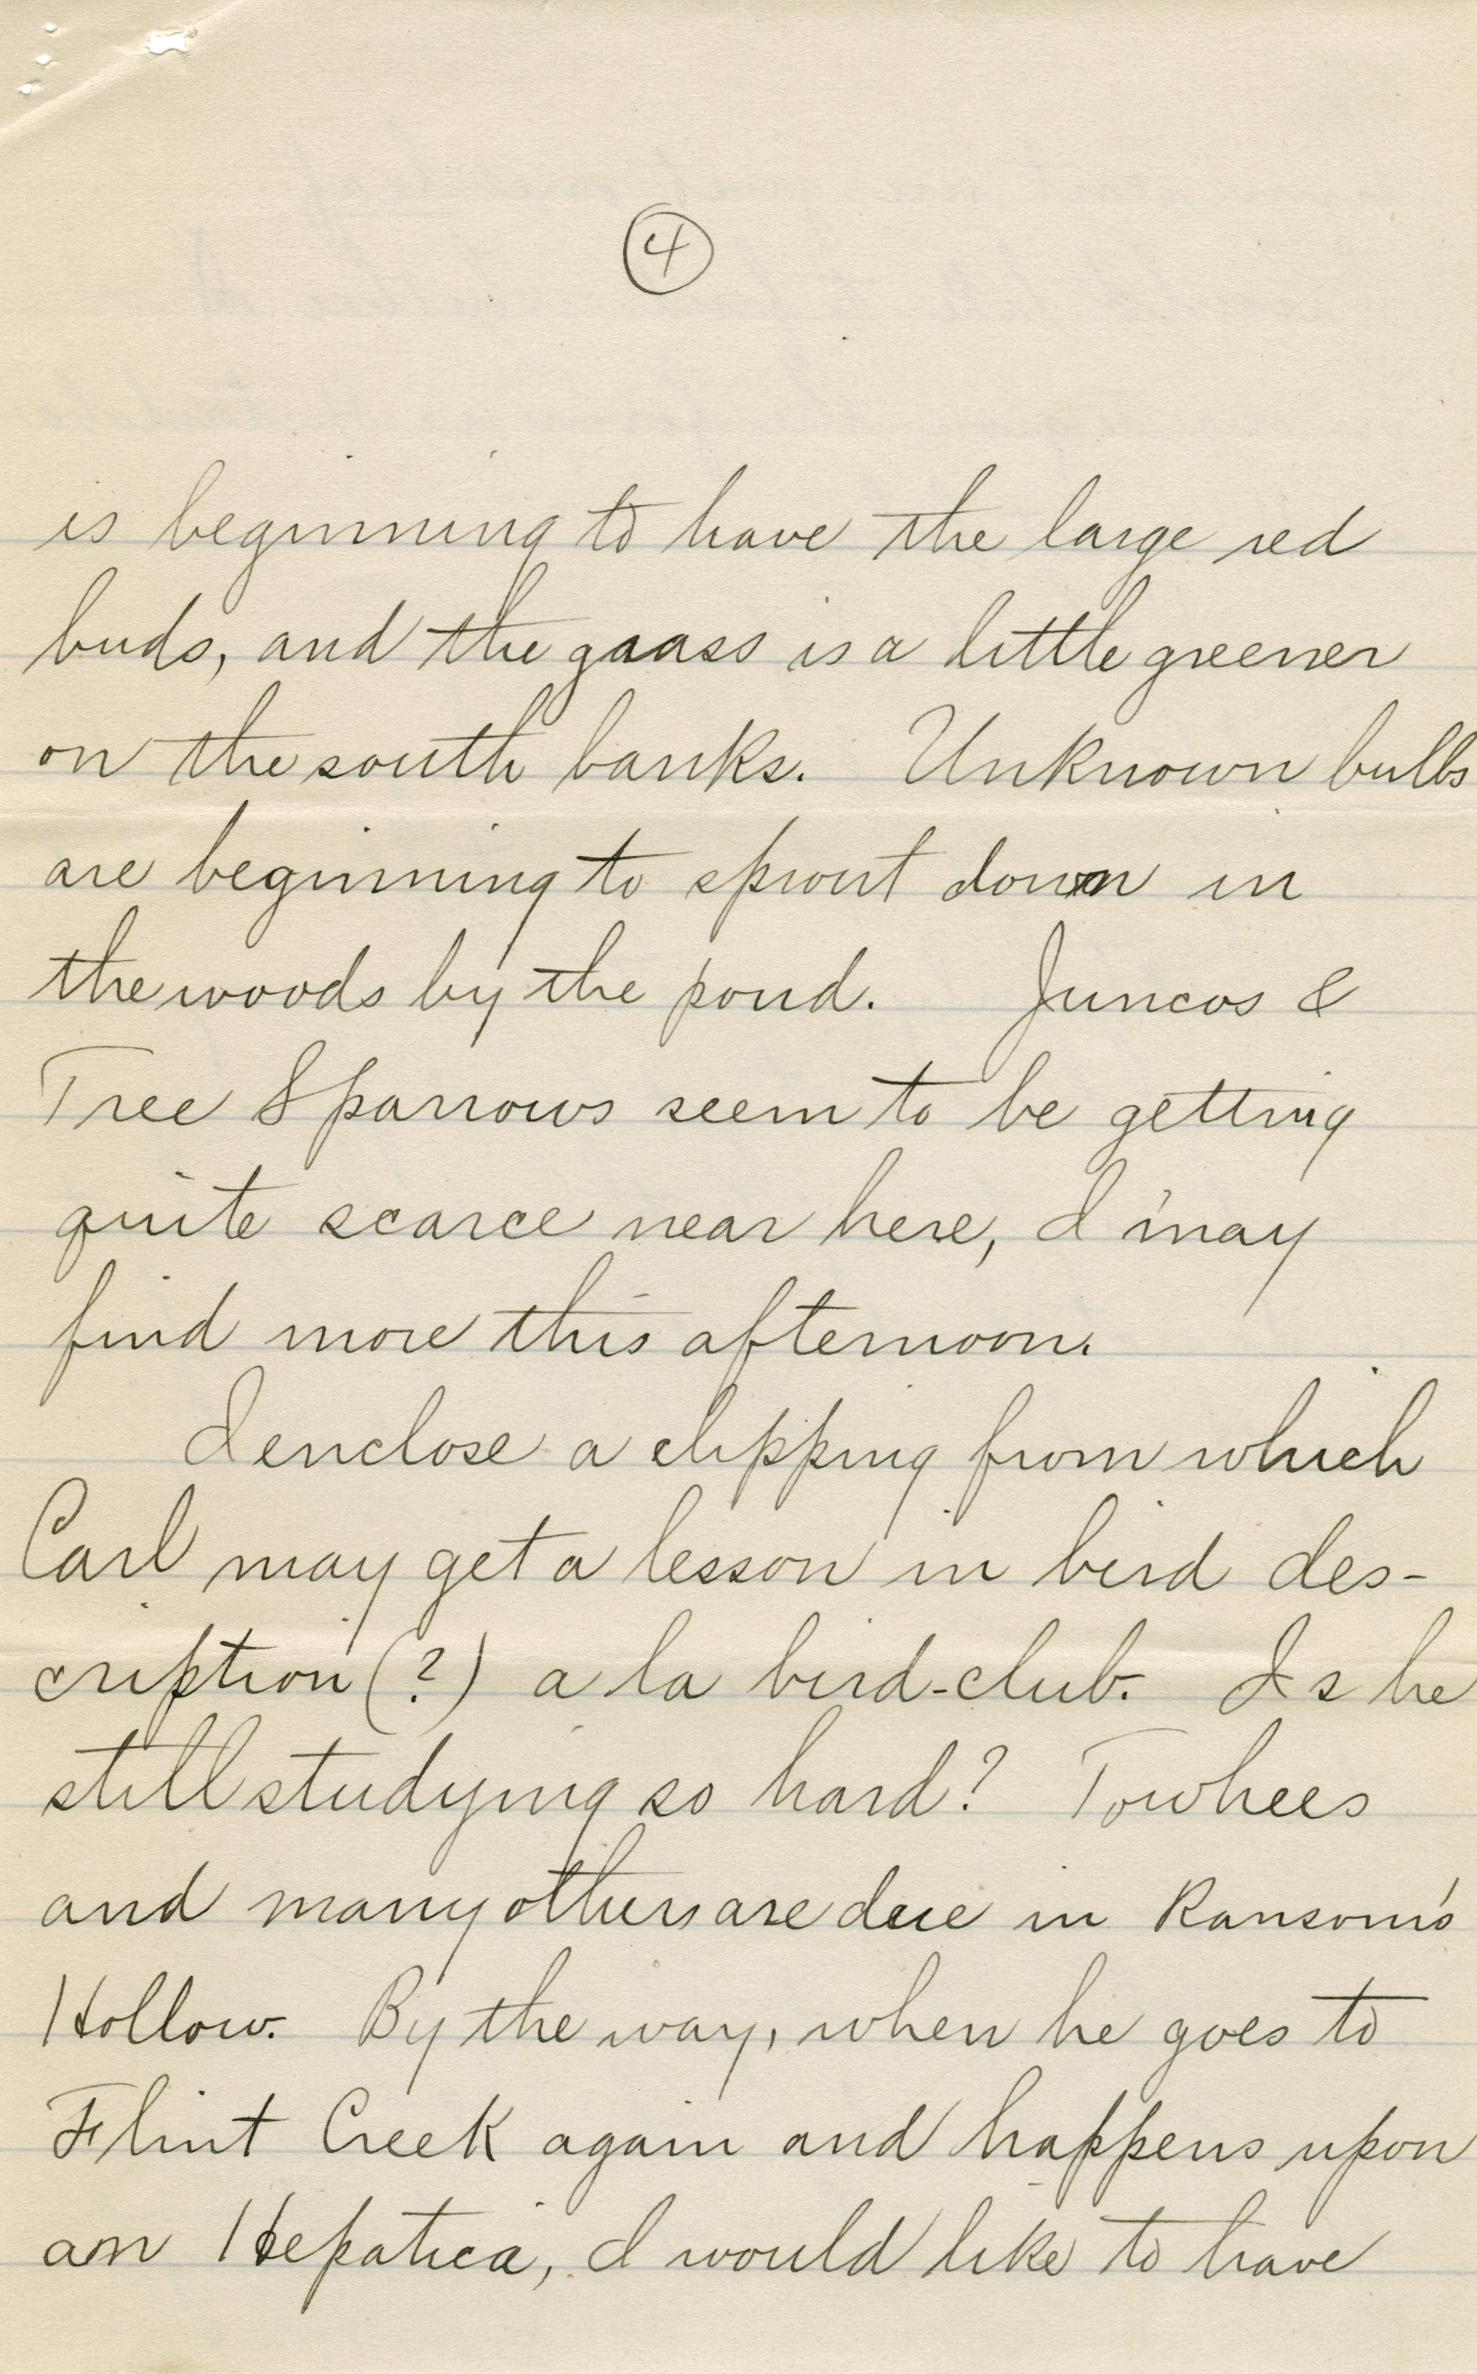 4
is beginning to have the large red
buds, and the graass is a little greener
on the south banks. Unknown bulbs
are beginning to sprout down in
the woods by the pond. Juncos &
Tree Sparrows seem to be getting
quite scarce near here, I may
find more this afternoon.
I enclose a clipping from which
Carl may get a lesson in bird des-
cription (?) a la bird-club. Is he
still studying so hard? Towhees
and many others are due in Ransom's
Hollow. By the way, when he goes to
Flint Creek again and happens upon
an Hepatica, I would like to have